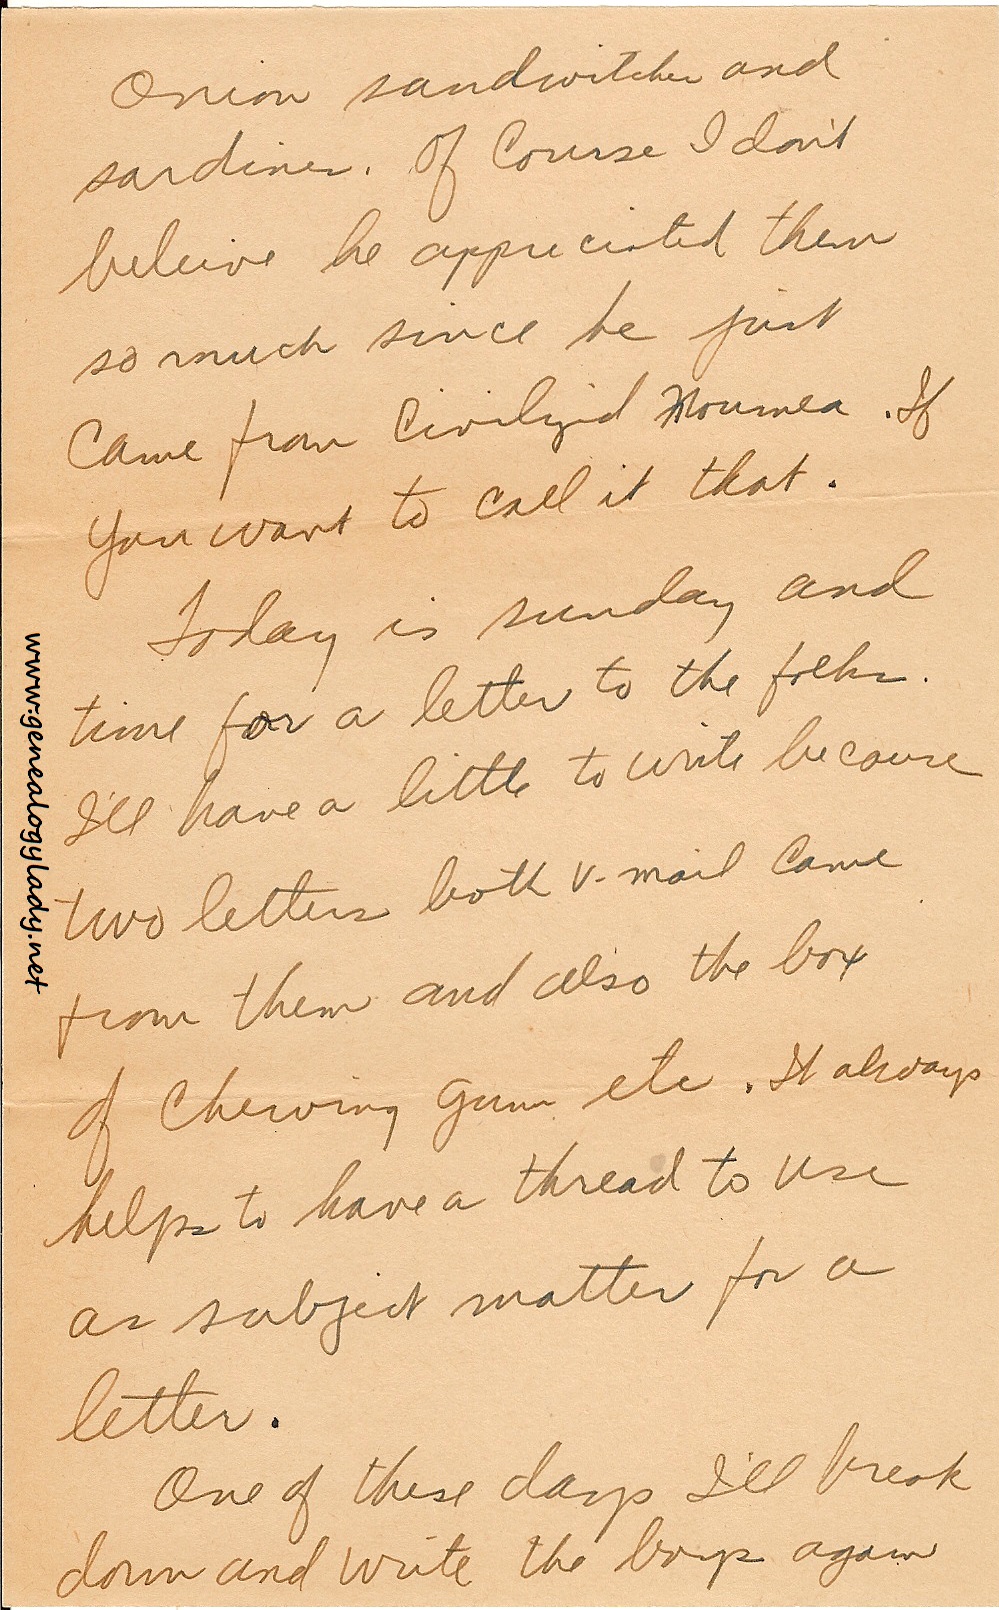 Onion sandwitches and
sardines. Of Course I don't
beleive he appreciated them
so much since he just
Came from Civilized Noumea. If
you want to call it that.
Today is sunday and
time for a letter to the folks.
I'll have a little to write because
two letters both V-mail Came
from them and also the box
of Chewing Gum etc. It always
helps to have a thread to use
as subject matter for a
letter.
One of these days I'll break
down and write the boys again
www.genealogylady.net